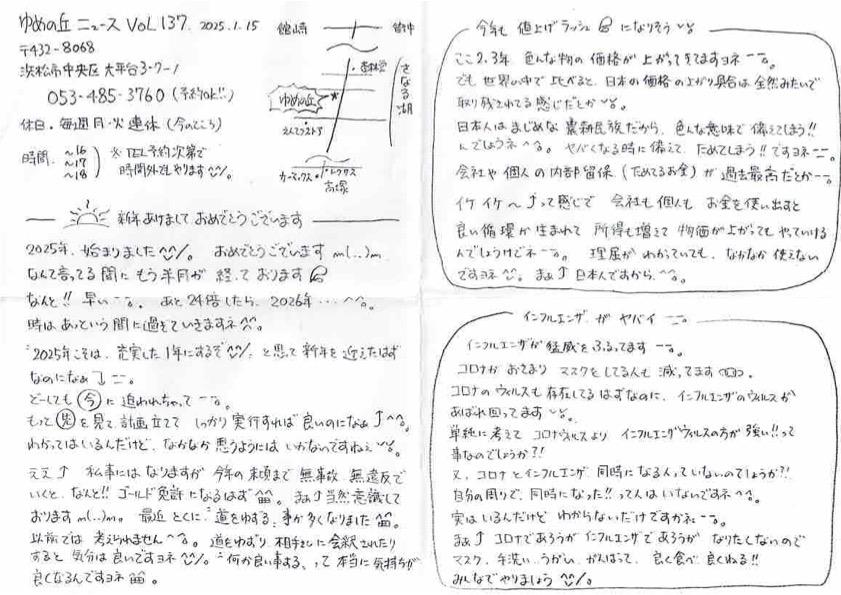 ゆめの丘 ニュース VOL 137. 2025.1.15
〒432-8068
浜松市中央区大平台3-7-1
053-485-3760 (予約OK!!)
休日・毎週月・火 連休 (今のところ)
時間. ~16
~17
~18
※ TEL予約次第で
時間外でもやります^^。
舘山寺
さなる湖
ゆめの丘
高塚
新年あけまして おめでとうございます
2025年、始まりました^^。 おめでとうございます m(..)m.
なんて言ってる間に もう半月が 経っております
なんと!! 早い ーー。 あと 24倍したら、2026年・・・ ^^。
時は あっという間に過ぎていきますネ^^。
"2025年こそは、充実した1年にするぞ^^。 と思って 新年を迎えたはず
なのになぁ↓ ーー。
どーしても 今に 追われちゃって ーー。
もって 先を見て、計画立てて しっかり 実行すれば 良いのになぁ↑ ^^。
わかってはいるんだけど、なかなか 思うようには いかないですねぇ
ええ↑ 私事には なりますが 今年の 末頃まで 無事故、無違反で
いくと、なんと!! ゴールド免許になるはず ^^。 まぁ↑当然意識して
おります m(..)m。 最近 とくに "道をゆずる"事が 多くなりました ^^。
以前では 考えられません ^^。 道をゆずり、相手さんに 会釈されたり
すると 気分は 良いですヨネ^^。 "何か良い事する、って 本当に 気持ちが
良くなるんですヨネ ^^。
今年も 値上げラッシュ になりそう
ここ2.3年 色んな物の 価格が 上がってきてますヨネ ーー。
でも 世界の中で 比べると、日本の価格の上がり具合は 全然みたいで
取り残されてる 感じだとか
日本人は まじめな 農耕民族だから、色んな意味で 備えてしまう!!
んでしょうネ ^^。 ヤバくなる時に備えて、ためてしまう!! ですヨネ ーー。
会社や 個人の 内部留保 (ためてるお金) が 過去最高だとか ーー。
イケイケ~↑って感じで 会社も 個人も お金を使い出すと
良い循環が 生まれて 所得も増えて 物価が上がっても やっていける
んでしょうけどネ ーー。 理屈が わかっていても、なかなか 使えない
ですヨネ ^^。 まぁ↑ 日本人ですから、^^。
インフルエンザ が ヤバイ ーー。
インフルエンザが 猛威を ふるってます ーー。
コロナが おさまり マスクを してる人も 減ってます
コロナの ウィルスも 存在してる はずなのに、インフルエンザのウィルスが
あばれ回ってます
単純に考えて コロナウィルスより インフルエンザウィルスの方が 強い!!って
事なのでしょうか?!
又、コロナとインフルエンザ、同時になる人って いないのでしょうか?!
自分の周りで、同時になった!! って人は いないですネ ^^。
実は いるんだけど わからないだけですかネ ーー。
まぁ↑ コロナであろうが インフルエンザであろうが なりたくないので
マスク、手洗い、うがい、がんばって、 良く食べ 良くねる!!
みんなで やりましょう ^^。